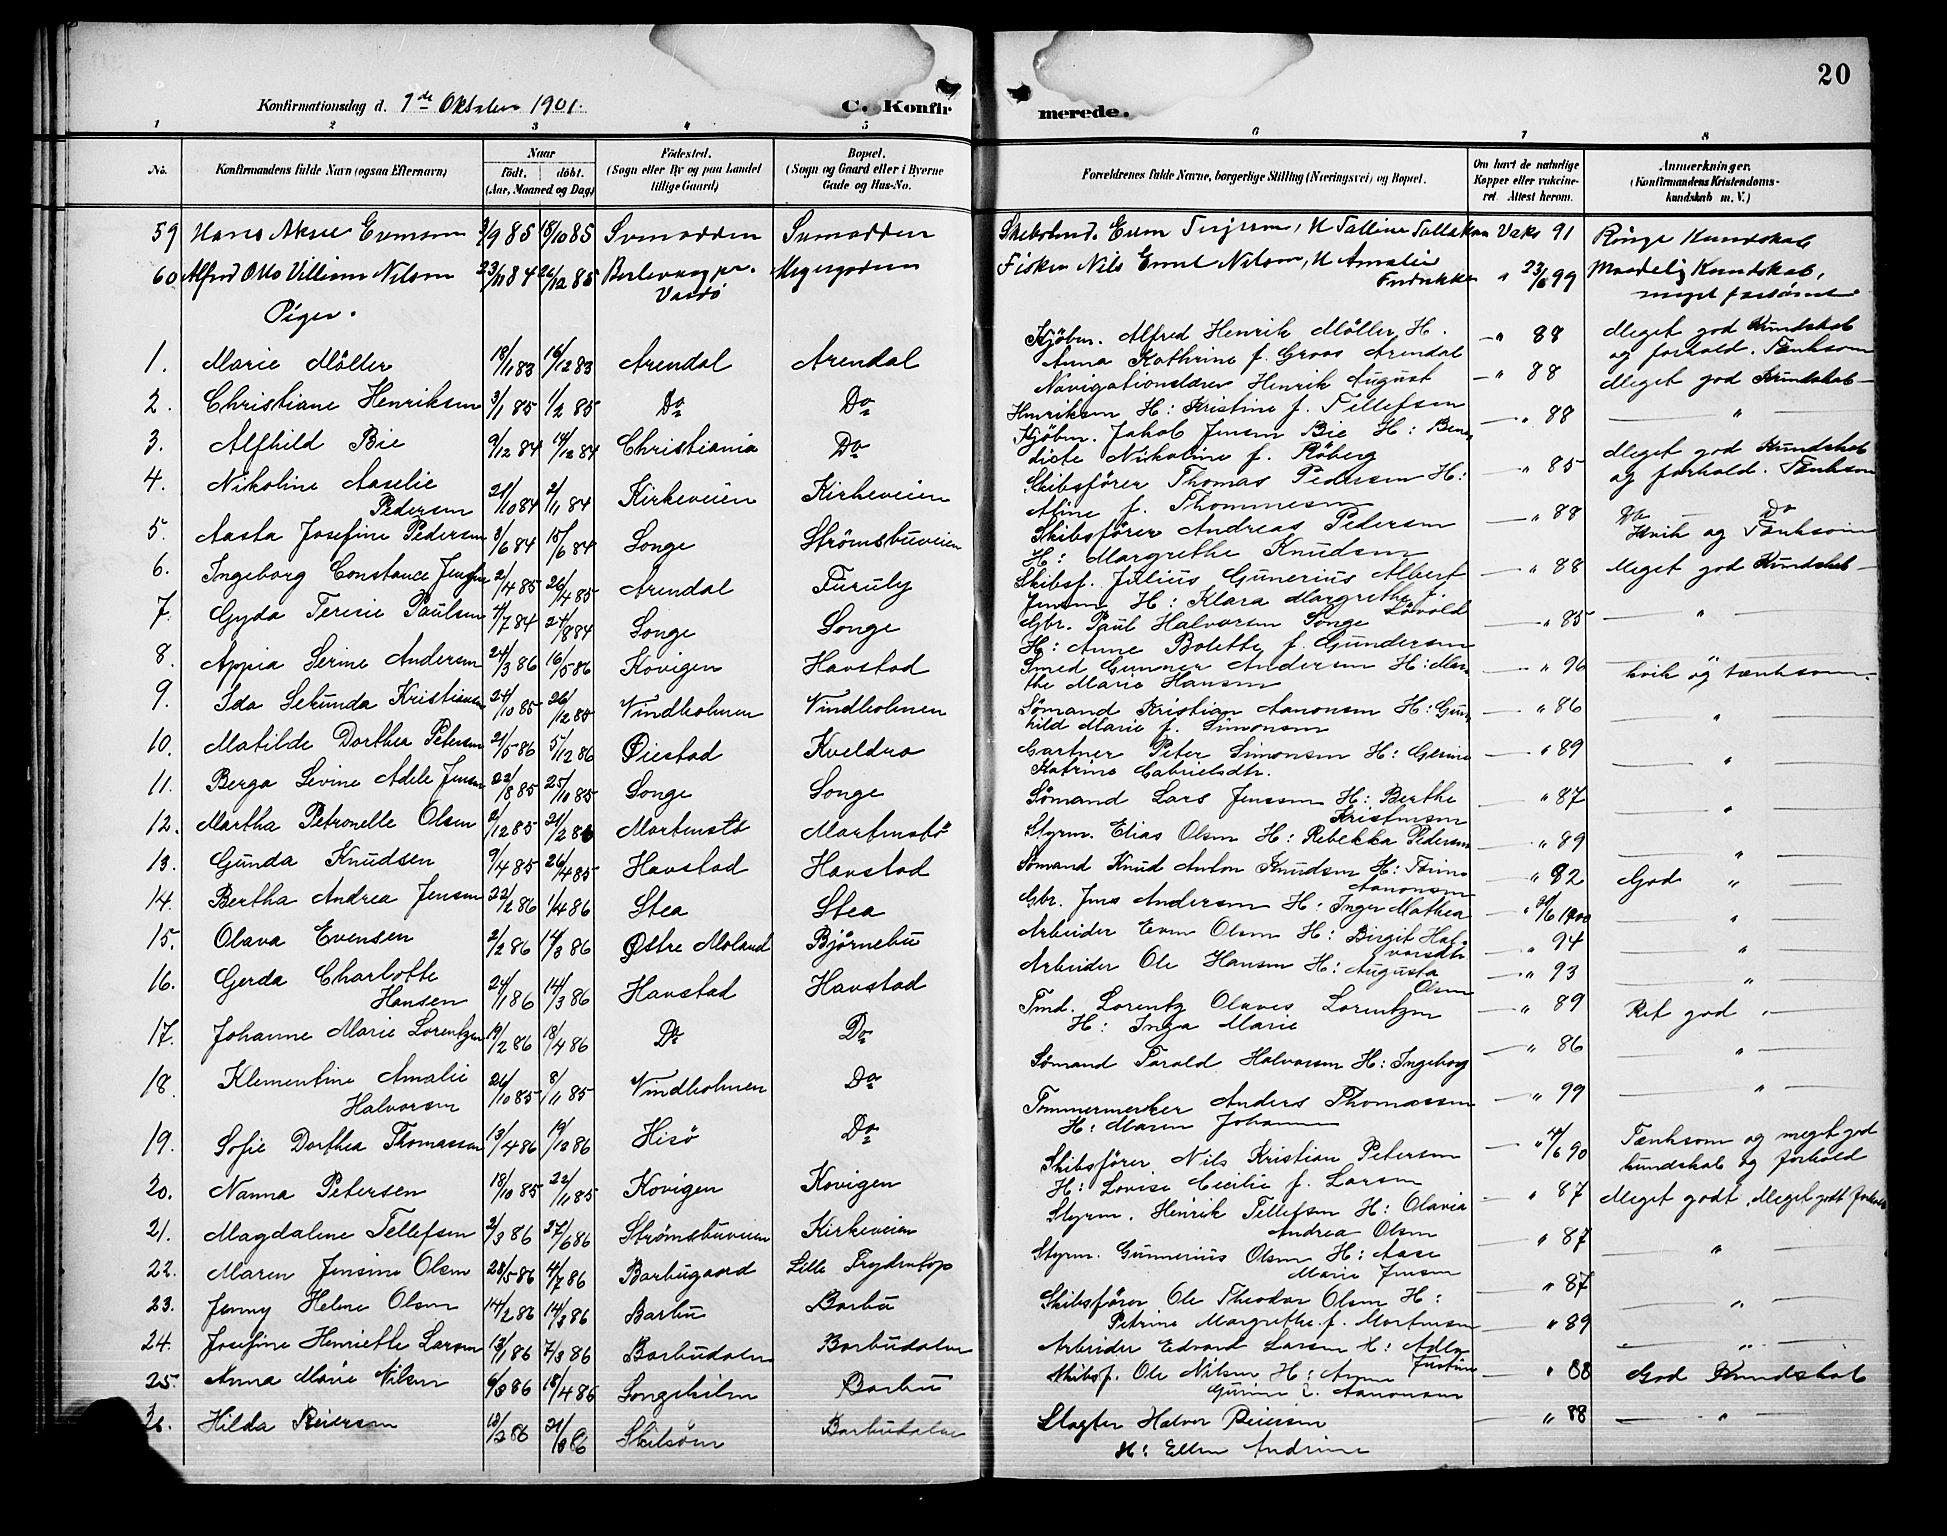 20
Konfirmationsdag d. 7de Oktober 1901. C. Konfir merede.
1 2 3 4 5 6 7 8
No. Konfirmandens fulde Navn (ogsaa Efternavn) Naar født. døbt. (Aar, Maaned og Dag) Fødested. (Sogn eller By og paa Landet tillige Gaard) Bopæl. (Sogn og Gaard eller i Byerne Gade og Hus-No. Forældrenes fulde Navne, borgerlige Stilling (Næringsvei) og Bopæl. Om havt de naturlige Kopper eller vakcineret. Attest herom. Anmærkninger. (Konfirmandens Kristendomskundskab m. V.)
59 Hans 9/85 18/10 85 Vaks 91 Ringe Kundskab
60 Alfred Otto Villiam Nilsen 23/11 84 26/12 85 Berlevaag pr. Vardø Fisker Nils Nilsen, H Amalie Fredrikke " 23/6 99 Maadelig Kundskab, meget
Piger.
1. Marie Möller 18/1 83 16/12 83 Arendal Arendal Kjøbm. Alfred Henrik Möller, H. Anna Kathrine f. Groos Arendal " 88 Meget god Kundskab og forhold. Tænksom
2. Christiane Henriksen 3/1 85 1/2 85 Do Do Navigationslærer Henrik August Henriksen H: Kristine f. Tellefsen " 88 Meget god Kundskab
3. Alfhild Bie 9/12 84 14/12 84 Christiania Do Kjøbm. Jakob Jensen Bie H: Benedicte Nikoline f. Röberg " 88 "
4. Nikoline Aaselie Pedersen 21/10 84 2/11 84 Kirkeveien Kirkeveien Skibsfører Thomas Pedersen H: Aline f. Thommesen " 85 Meget god Kundskab og forhold. Tænksom
5. Aasta Josefine Pedersen 3/6 84 15/6 84 Songe Strømsbuveien Skibsfører Andreas Pedersen H: Margrethe Knudsen " 88 Do Do Kvik og Tænksom
6. Ingeborg Constance Jensen 2/4 85 26/4 85 Arendal Furuly Skibsf. Julius Gunerius Albert Jensen H: Klara Margrethe f. Løvold " 88 Meget god Kundskab
7. Gyda Teresie Paulsen 4/7 84 24/8 84 Songe Songe Gbr. Paul Halvorsen Songe H: Anne Bolette f. Gundersen " 85 "
8. Appia Serine Andersen 24/3 86 16/5 86 Kovigen Havstad Smed Gunner Andersen H: Marthe Marie Hansen " 90 kvik og tænksom.
9. Ida Sekunda Kristiansen 24/10 85 26/12 85 Vindholmen Vindholmen Sømand Kristian Aanonsen H: Gunhild Marie f. Simonsen " 86 "
10. Matilde Dorthea Petersen 21/5 86 5/12 86 Øiestad Kveldro Gartner Peter Simonsen H: Gerine Katrine Gabrielsdtr. " 89 "
11. Berga Sevine Adele Jensen 22/8 85 25/10 85 Songe Songe Sømand Lars Jenssen H: Berthe Kristensen " 87 "
12. Martha Petronelle Olsen 2/12 85 21/2 86 Mortenstø Mortenstø Styrm. Elias Olsen H: Rebekka Pedersen " 89 "
13. Gunda Knudsen 9/4 85 26/4 85 Havstad Havstad Sømand Knud Anton Knudsen H: Aanonsen " 92 God "
14. Bertha Andrea Jensen 22/2 86 1/4 86 Stea Stea Gbr. Jens Andersen H: Inger Mathea " 6 1900 "
15. Olava Evensen 2/2 86 14/3 86 Østre Moland Bjørnebu Arbeider Even Olsen H: Birgit Halvorsdtr " 94 "
16. Gerda Charlotte Hansen 24/1 86 14/3 86 Havstad Havstad Arbeider Ole Hansen H: Augusta Olsen " 93 "
17. Johanne Marie Lorentzen 19/2 86 18/4 86 Do Do Tmd. Lorentz Olaves Lorentzen H: Inga Marie " 89 Ret god "
18. Klementine Amalie Halvorsen 26/10 85 8/11 85 Vindholmen Do Sømand Tarald Halvorsen H: Ingeborg " 86 "
19. Sofie Dorthea Thomassen 13/4 86 19/12 86 Hisø Do Tømmermerker Anders Thomassen H: Maren Johanne " 99 "
20. Nanna Petersen 18/10 85 22/11 85 Kovigen Kovigen Skibsfører Nils Kristian Petersen H: Lovise Cecilie f. Larsen " 4/6 90 Tænksom og meget god kundskab og forhold
21. Magdalene Tellefsen 2/3 86 27/6 86 Strømsbuveien Kirkeveien Styrm. Henrik Tellefsen H: Olavia Andrea Olsen " 87 Meget godt, Meget godt
22. Maren Jensine Olsen 28/5 86 4/7 86 Barbugaard Lille Styrm. Gunnerius Olsen H: Aase Marie Jensen " 87 "
23. Jenny Helene Olsen 14/2 86 14/3 86 Barbu Barbu Skibsfører Ole Theodor Olsen H: Petrine Margrethe f. Mortensen " 87 "
24. Josefine Henriette Larsen 13/1 86 7/3 86 Barbudalen Barbudalen Arbeider Edvard Larsen H: " 89 "
25. Anna Marie Nilsen 6/3 86 18/4 86 Songekilen Barbu Skibsf. Ole Nilsen H: Anne Gurine Aanonsen " 88 God Kundskab
26. Hilda Reiersen 12/2 86 21/3 86 Skilsøen Barbudalen Slagter Halvor Reiersen H: Ellen Andrine " 88 "